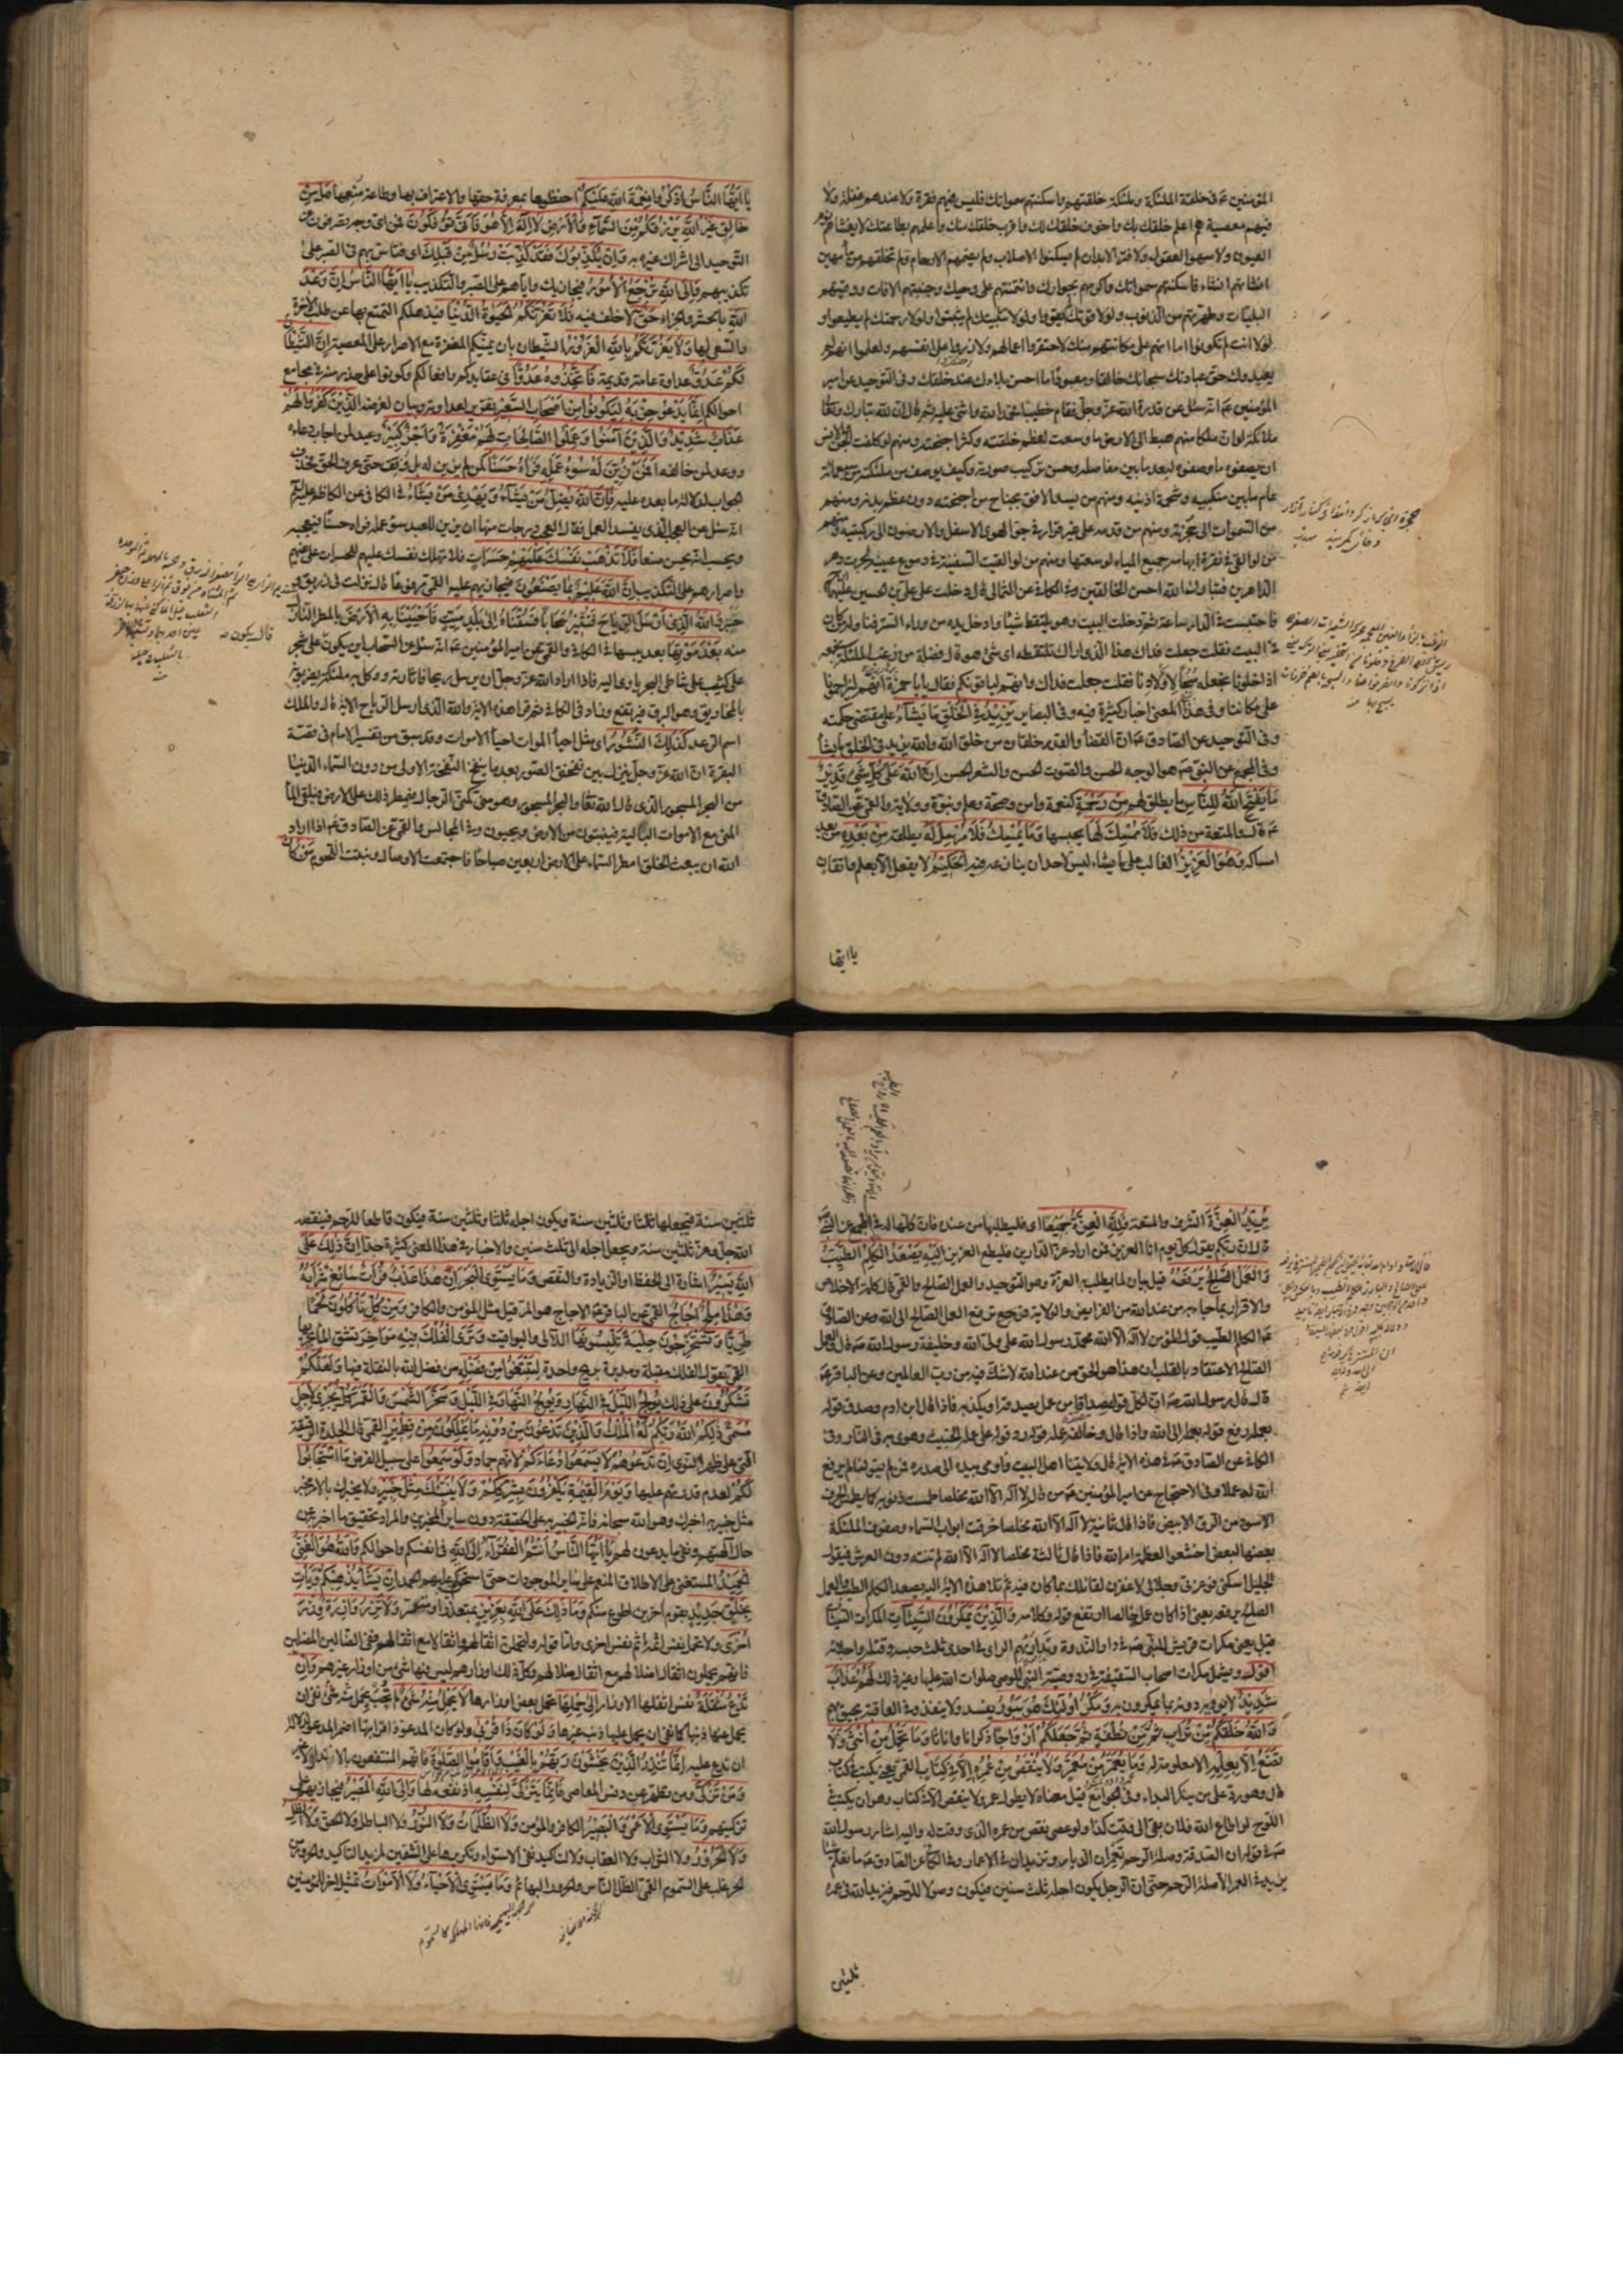 المؤمنين ع في خلقة الملئكة وملئكة خلقتهم واسكنتهم سمواتك فليس فيهم فترة ولا عندهم غفلة ولا
فيهم معصية هم اعلم خلقك بك واخوف خلقك لك واقرب خلقك منك واعلمهم بطاعتك لا يغشاهم نوم
العيون ولا سهو العقول ولا فترة الابدان لم يسكنوا الاصلاب ولم يضمهم الارحام ولم تخلقهم من ماء مهين
انشاتهم انشاء فاسكنتهم سمواتك واكرمتهم بجوارك وائتمنتهم على وحيك وجنبتهم الافات ووقيتهم
البليات وطهرتهم من الذنوب ولولا قوتك لم يقووا ولولا تثبيتك لم يثبتوا ولولا رحمتك لم يطيعوا و
لولا انت لم يكونوا اما انهم على مكانتهم منك
يعبدوك حق عبادتك سبحانك خالقا ومعبودا ما احسن بلاءك عند خلقك وفي التوحيد عن امير
المؤمنين ع انه سئل عن قدرة الله عز وجل فقام خطيبا فحمد الله واثنى عليه ثم قال ان لله تبارك وتعالى
ملائكة لو ان ملكا منهم هبط الى الارض ما وسعت لعظم خلقته وكثرة اجنحته ومنهم لو كلفت الجن والانس
ان يصفوه ما وصفوه لبعد ما بين مفاصله وحسن تركيب صورته وكيف يوصف من ملئكته من سبعمائة
عام ما بين منكبيه وشحمة اذنيه ومنهم من يسد الافق بجناح من اجنحته دون عظم بدنه ومنهم
من السموات الى حجزته ومنهم من قدمه على غير قرار في جو الهوى الاسفل والارضون الى ركبتيه ومنهم
من لو القي في نقرة ابهامه جميع المياه لوسعتها ومنهم من لو القيت السفينة في دموع عينيه لجرت دهر
الداهرين فتبارك الله احسن الخالقين وفي الكافي عن الثمالي قال دخلت على علي بن الحسين عليهما
فاحتبست في الدار ساعة ثم دخلت البيت وهو يلتقط شيئا وادخل يده من وراء الستر فناوله من كان
في البيت فقلت جعلت فداك هذا الذي اراك تلتقطه اي شيء هو قال فضلة من زغب الملئكة نجمعه
اذا خلونا نجعله سيحا لاولادنا فقلت جعلت فداك وانهم لياتونكم فقال يا با حمزة انهم ليزاحمونا
على تكاتنا وفي هذا المعنى اخبار كثيرة فيه وفي البصائر يزيد في الخلق ما يشاء على مقتضى حكمته
وفي التوحيد عن الصادق ع ان القضاء والقدر خلقان من خلق الله والله يزيد في الخلق ما يشاء
وفي المجمع عن النبي ص هو الوجه الحسن والصوت الحسن والشعر الحسن ان الله على كل شيء قدير
ما يفتح الله للناس ما يطلق لهم من رحمة كنعمة وامن وصحة وعلم ونبوة وولاية والقمي عن الصادق
ع قال والمتعة من ذلك فلا ممسك لها يحبسها وما يمسك فلا مرسل له يطلقه من بعده من بعد
امساكه وهو العزيز الغالب على ما يشاء ليس لاحد ان ينازعه فيه الحكيم لا يفعل الا بعلم واتقان
يا ايها
يا ايها الناس اذكروا نعمة الله عليكم احفظوها بمعرفة حقها والاعتراف بها وطاعة منعمها هل من
خالق غير الله يرزقكم من السماء والارض لا اله الا هو فانى تؤفكون فمن اي وجه تصرفون عن
التوحيد الى اشراك غيره به وان يكذبوك فقد كذبت رسل من قبلك اي فتاس بهم في الصبر على
تكذيبهم والى الله ترجع الامور فيجازيك واياهم على الصبر والتكذيب يا ايها الناس ان وعد
الله بالحشر والجزاء حق لا خلف فيه فلا تغرنكم الحيوة الدنيا فيذهلكم التمتع بها عن طلب الاخرة
والسعي لها ولا يغرنكم بالله الغرور الشيطان بان يمنيكم المغفرة مع الاصرار على المعصية ان الشيطان
لكم عدو عداوة عامة قديمة فاتخذوه عدوا في عقايدكم وافعالكم وكونوا على حذر منه في مجامع
احوالكم انما يدعو حزبه ليكونوا من اصحاب السعير تقرير لعداوته وبيان لغرضه الذين كفروا لهم
عذاب شديد والذين آمنوا وعملوا الصالحات لهم مغفرة واجر كبير وعيد لمن اجاب دعاءه
ووعد لمن خالفه افمن زين له سوء عمله فرآه حسنا كمن لم يزين له بل وفق حتى عرف الحق فحذف
الجواب لدلالة ما بعده عليه فان الله يضل من يشاء ويهدي من يشاء في الكافي عن الكاظم عليه السلام
انه سئل عن العجب الذي يفسد العمل فقال العجب درجات منها ان يزين للعبد سوء عمله فيراه حسنا فيعجبه
ويحسب انه يحسن صنعا فلا تذهب نفسك عليهم حسرات فلا تهلك نفسك عليهم للحسرات على غيهم
واصرارهم على التكذيب ان الله عليم بما يصنعون فيجازيهم عليه القمي مرفوعا قال نزلت في زريق و
حبتر والله الذي ارسل الرياح فتثير سحابا فسقناه الى بلد ميت فاحيينا به الارض بالمطر النازل
منه بعد موتها بعد يبسها في الكافي والقمي عن امير المؤمنين ع انه سئل عن السحاب اين يكون قال يكون على شجر
على كثيب على شاطئ البحر ياوي اليه فاذا اراد الله عز وجل ان يرسله ارسل ريحا فاثارته ووكل به ملئكة يضربونه
بالمخاريق وهو البرق فيرتفع وزاد في الكافي ثم قرأ هذه الاية والله الذي ارسل الرياح الاية قال والملك
اسمه الرعد كذلك النشور اي مثل احياء الموات احياء الاموات وقد سبق من تفسير الامام في قصة
البقرة ان الله عز وجل ينزل بين نفختي الصور بعد ما ينفخ النفخة الاولى من دون السماء الدنيا
من البحر المسجور الذي قال الله تعالى والبحر المسجور وهو مني كمني الرجال فيمطر ذلك على الارض فيلقى الماء
المني مع الاموات البالية فينبتون من الارض ويحيون وفي المجالس والقمي عن الصادق ع اذا اراد
الله ان يبعث الخلق امطر السماء على الارض اربعين صباحا فاجتمعت الاوصال ونبتت اللحوم من كان
يريد العزة الشرف والمنعة فلله العزة جميعا اي فليطلبها من عنده فان كلها له في المجمع عن النبي ص
قال ان ربكم يقول كل يوم انا العزيز فمن اراد عز الدارين فليطع العزيز اليه يصعد الكلم الطيب
والعمل الصالح يرفعه قيل بيان لما يطلب به العزة وهو التوحيد والعمل الصالح والقمي قال كلمة الاخلاص
والاقرار بما جاء به من عند الله من الفرائض والولاية ترفع العمل الصالح الى الله وعن الصادق
ع الكلم الطيب قول المؤمن لا اله الا الله محمد رسول الله علي ولي الله وخليفة رسول الله ص قال والعمل
الصالح الاعتقاد بالقلب ان هذا هو الحق من عند الله لا شك فيه من رب العالمين وعن الباقر ع
قال قال رسول الله ص ان لكل قول مصداقا من عمل يصدقه او يكذبه فاذا قال ابن ادم وصدق قوله
بعمله رفع قوله بعمله الى الله واذا قال وخالف عمله قوله رد قوله على عمله الخبيث وهوى به في النار وفي
الكافي عن الصادق ع في هذه الاية قال ولايتنا اهل البيت واومى بيده الى صدره فمن لم يتولنا لم يرفع
الله له عملا وفي الاحتجاج عن امير المؤمنين ع من قال لا اله الا الله مخلصا طمست ذنوبه كما يطمس الحرف
الاسود من الرق الابيض فاذا قال ثانية لا اله الا الله مخلصا خرقت ابواب السماء وصفوف الملئكة
بعضها لبعض اخشعوا لعظمة امر الله فاذا قال ثالثة مخلصا لا اله الا الله لم تنته دون العرش فيقول
الجليل اسكني فوعزتي وجلالي لاغفرن لقائلك بما كان فيه ثم تلا هذه الاية اليه يصعد الكلم الطيب والعمل
الصالح يرفعه يعني اذا كان عمله خالصا ارتفع قوله وكلامه والذين يمكرون السيئات المكرات السيئات
قيل يعني مكرات قريش للنبي ص في دار الندوة وتداريهم الراي في احدى ثلث حبسه وقتله واجلائه
اقول ويشمل مكرات اصحاب السقيفة في رد وصية النبي للوصي صلوات الله عليها وغير ذلك لهم عذاب
شديد لا يؤبه دونه بما يمكرون به ومكر اولئك هو يبور يفسد ولا ينفذ وفي العاقبة يحيق بهم
والله خلقكم من تراب ثم من نطفة ثم جعلكم ازواجا ذكرانا واناثا وما تحمل من انثى ولا
تضع الا بعلمه الا معلومة له وما يعمر من معمر ولا ينقص من عمره الا في كتاب القمي يعني يكتب في كتاب
قال وهو رد على من ينكر البداء وفي الجوامع قيل معناه لا يطول عمر ولا ينقص الا في كتاب وهو ان يكتب في
اللوح لو اطاع الله فلان بقي الى وقت كذا ولو عصى نقص من عمره الذي وقت له واليه اشار رسول الله
ص في قوله ان الصدقة وصلة الرحم تعمران الديار وتزيدان في الاعمار وفي الكافي عن الصادق ع ما نعلم شيئا
يزيد في العمر الا صلة الرحم حتى ان الرجل يكون اجله ثلث سنين فيكون وصولا للرحم فيزيد الله في عمره
ثلثين
ثلثين سنة فيجعلها ثلثا وثلثين سنة ويكون اجله ثلثا وثلثين سنة فيكون قاطعا للرحم فينقصه
الله جل وعز ثلثين سنة ويجعل اجله الى ثلث سنين والاخبار في هذا المعنى كثيرة جدا ان ذلك على
الله يسير اشارة الى الحفظ او الزيادة والنقص وما يستوي البحران هذا عذب فرات سائغ شرابه
وهذا ملح اجاج القمي عن الباقر ع الاجاج هو المر قيل مثل للمؤمن والكافر ومن كل تاكلون لحما
طريا وتستخرجون حلية تلبسونها اللآلي واليواقيت وترى الفلك فيه مواخر تشق الماء بجريها
القمي يقول الفلك مقبلة ومدبرة بريح واحدة لتبتغوا من فضله من فضل الله بالنقلة فيها ولعلكم
تشكرون على ذلك يولج الليل في النهار ويولج النهار في الليل وسخر الشمس والقمر كل يجري لاجل
مسمى ذلكم الله ربكم له الملك والذين تدعون من دونه ما يملكون من قطمير القمي قال الجلدة الرقيقة
التي على ظهر النوى ان تدعوهم لا يسمعوا دعاءكم لانهم جماد ولو سمعوا على سبيل الفرض ما استجابوا
لكم لعدم قدرتهم عليها ويوم القيمة يكفرون بشرككم ولا ينبئك مثل خبير ولا يخبرك بالامر مخبر
مثل خبير به اخبرك وهو الله سبحانه فانه الخبير به على الحقيقة دون ساير المخبرين والمراد تحقيق ما اخبر به من
حال آلهتهم ونفي ما يدعون لهم يا ايها الناس انتم الفقراء الى الله في انفسكم واحوالكم والله هو الغني
الحميد المستغني على الاطلاق المنعم على ساير الموجودات حتى استحق عليهم الحمد ان يشأ يذهبكم ويأت
بخلق جديد بقوم آخرين اطوع منكم وما ذلك على الله بعزيز بمتعذر او متعسر ولا تزر وازرة وزر
اخرى ولا تحمل نفس آثمة اثم نفس اخرى واما قوله وليحملن اثقالهم واثقالا مع اثقالهم ففي الضالين المضلين
فانهم يحملون اثقال اضلالهم مع اثقال ضلالهم وكل ذلك اوزارهم ليس فيها شيء من اوزار غيرهم وان
تدع مثقلة نفس اثقلها الاوزار الى حملها تحمل بعض اوزارها لا يحمل منه شيء لم تجب بحمل شيء منه نفى ان
يحمل عنها ذنبها كما نفى ان يحمل عليها ذنب غيرها ولو كان ذا قربى ولو كان المدعو ذا قرابتها اضمر المدعو لدلالة
ان تدع عليه انما تنذر الذين يخشون ربهم بالغيب واقاموا الصلوة فانهم المنتفعون بالانذار لا غير
ومن تزكى ومن تطهر عن دنس المعاصي فانما يتزكى لنفسه اذ نفعه لها والى الله المصير فيجازيهم على
تزكيتهم وما يستوي الاعمى والبصير الكافر والمؤمن ولا الظلمات ولا النور ولا الباطل ولا الحق ولا الظل
ولا الحرور ولا الثواب ولا العقاب ولا لتاكيد نفي الاستواء وتكريرها على الشقين لمزيد التاكيد والحرور من
الحر غلب على السموم القمي الظل الناس والحرور البهائم وما يستوي الاحياء ولا الاموات تمثيل اخر للمؤمنين